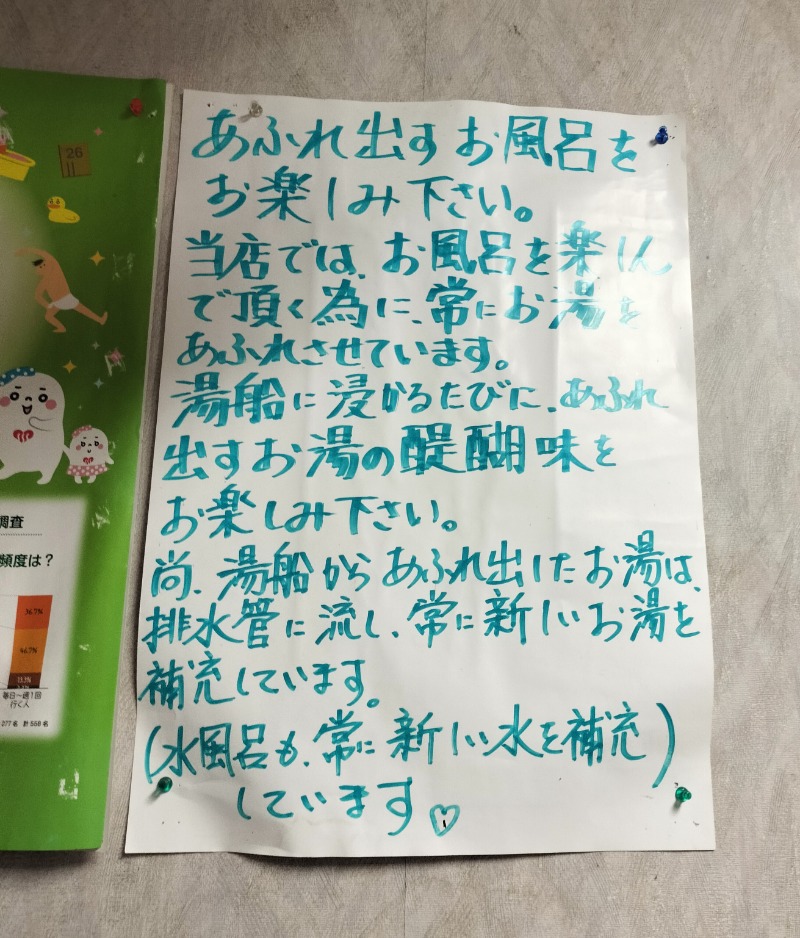 あふれ出すお風呂を
お楽しみ下さい。
当店では、お風呂を楽しん
で頂く為に、常にお湯を
あふれさせています。
湯船に浸かるたびに、あふれ
出すお湯の醍醐味を
お楽しみ下さい。
尚、湯船からあふれ出したお湯は、
排水管に流し、常に新しいお湯を
補充しています。
(水風呂も、常に新しい水を補充)
しています♡
26
調査
頻度は?
36.7%
46.7%
13.3%
毎日~週1回
行く人
277名 計 558名